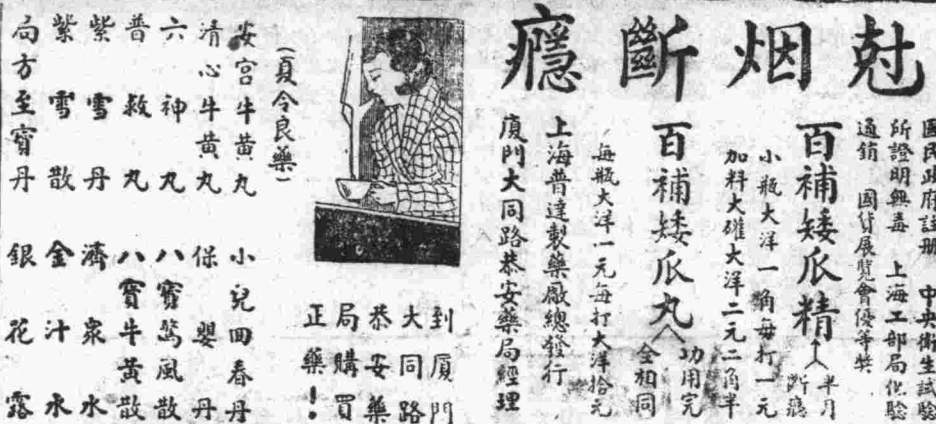 尅烟斷癮
國民政府註册　中央衛生試驗
所證明無毒　上海工部局化驗
通銷　國貨展覽會優等獎
百補矮瓜精(半月斷癮
小瓶大洋一角每打一元
加料大礶大洋二元二角半
百補矮瓜丸(功用完全相同
每瓶大洋一元每打大洋拾元
上海普達製藥廠總發行
廈門大同路恭安藥局經理
到廈門
大同路
恭安藥
局購買
正藥！
(夏令良藥)
安宮牛黄丸　小兒回春丹
清心牛黄丸　保嬰丹
六神丸　八寶驚風散
普救丸　八寶牛黄散
紫雪丹　濟衆水
紫雪散　金汁水
局方至寶丹　銀花露